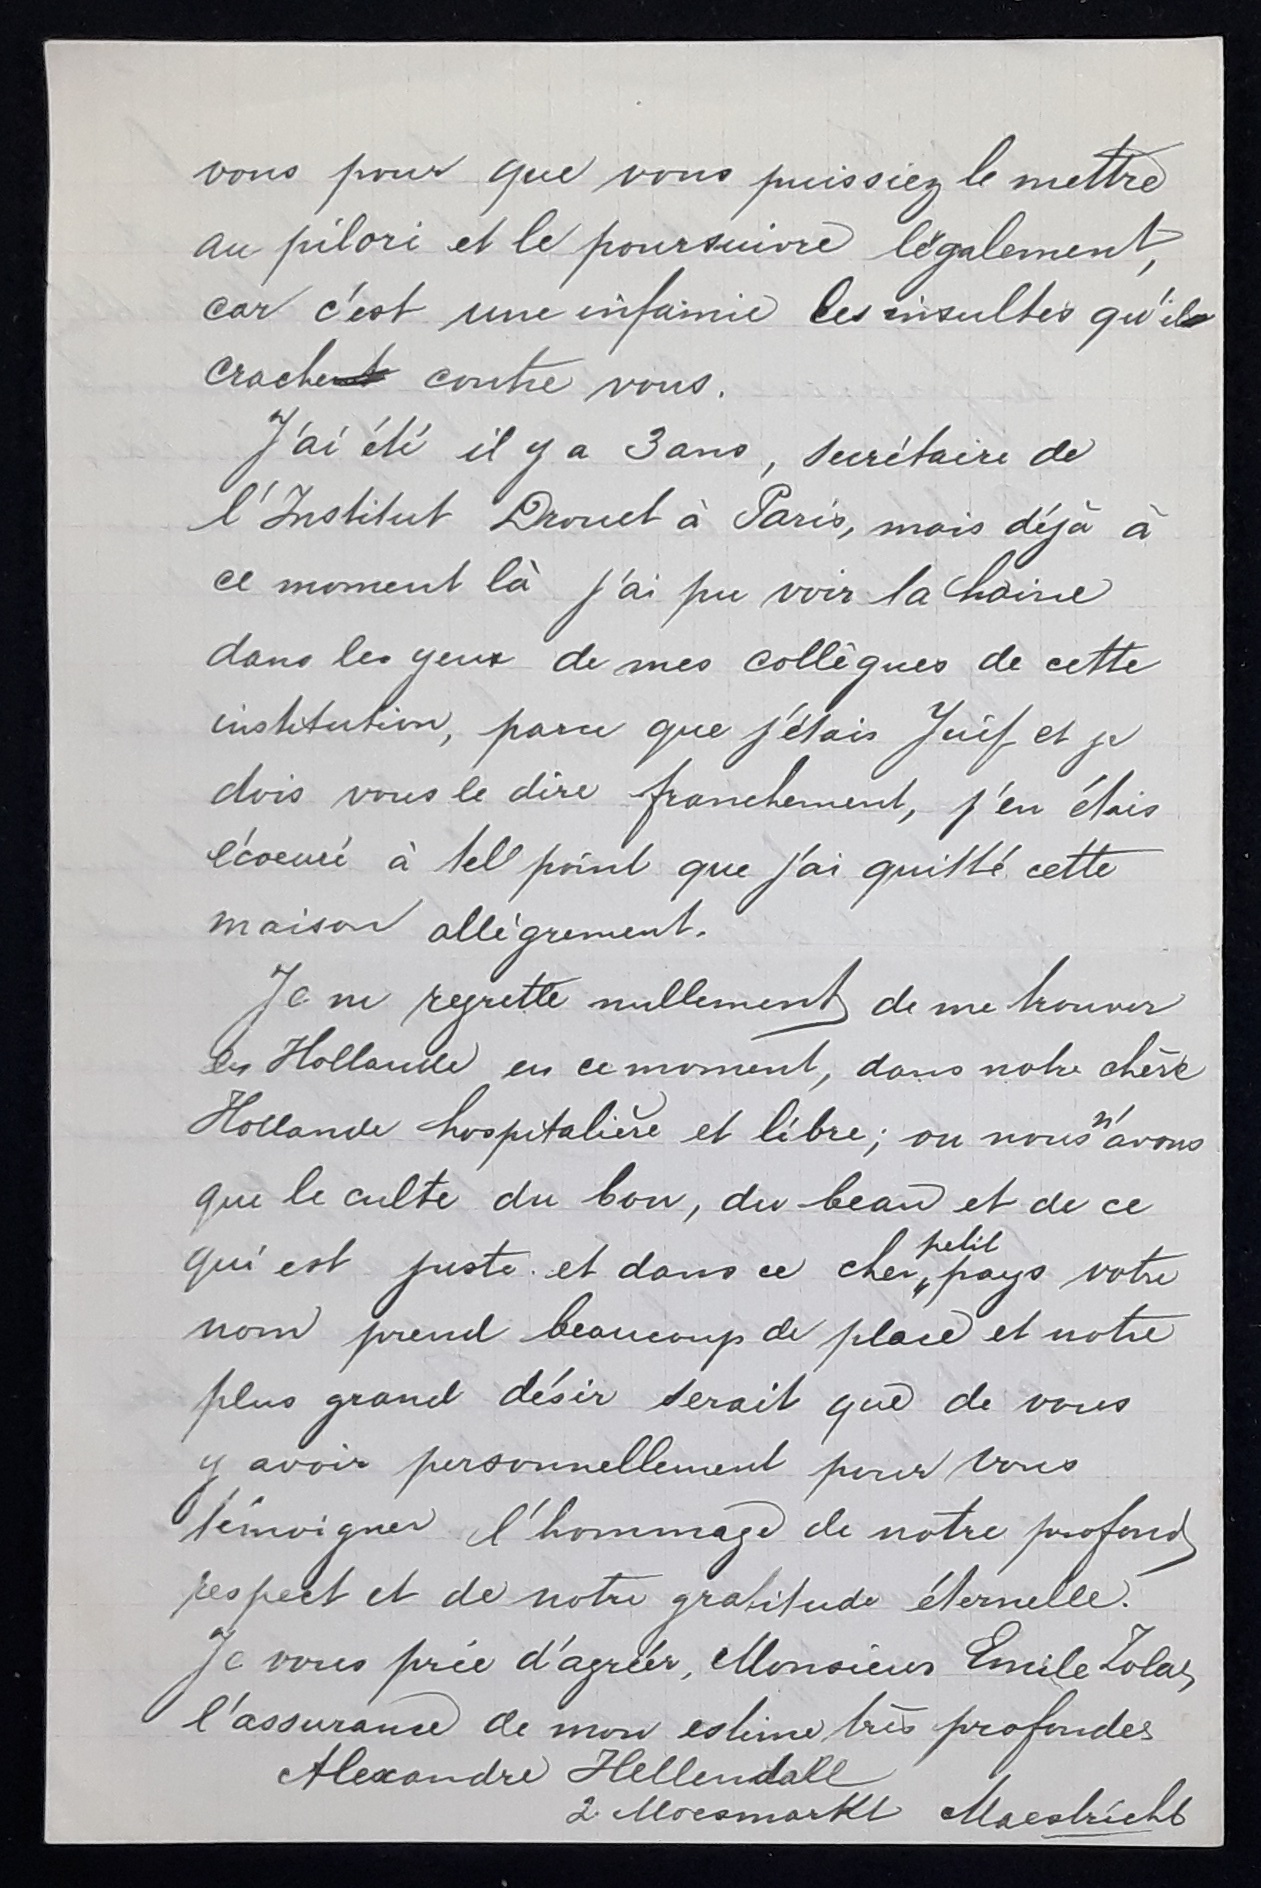 vous pour que vous puissiez le mettre
au pilori et le poursuivre légalement,
car c'est une infamie les insultes qu'il
crache contre vous.
J'ai été il y a 3 ans, secrétaire de
l'Institut Drouet à Paris, mais déjà à
ce moment là j'ai pu voir la haine
dans les yeux de mes collègues de cette
institution, parce que j'étais Juif et je
dois vous le dire franchement, j'en étais
écoeuré à tel point que j'ai quitté cette
maison allègrement.
Je ne regrette nullement de me trouver
en Hollande en ce moment, dans notre chère
Hollande hospitalière et libre; ou nous n'avons
que le culte du bon, du beau et de ce
qui est juste et dans ce cher petit pays votre
nom prend beaucoup de place et notre
plus grand désir serait que de vous
y avoir personnellement pour vous
témoigner l'hommage de notre profond
respect et de notre gratitude éternelle.
Je vous prie d'agréer, Monsieur Emile Zola,
l'assurance de mon estime très profonde
Alexandre Hellendall
2 Moesmarkt Maestricht